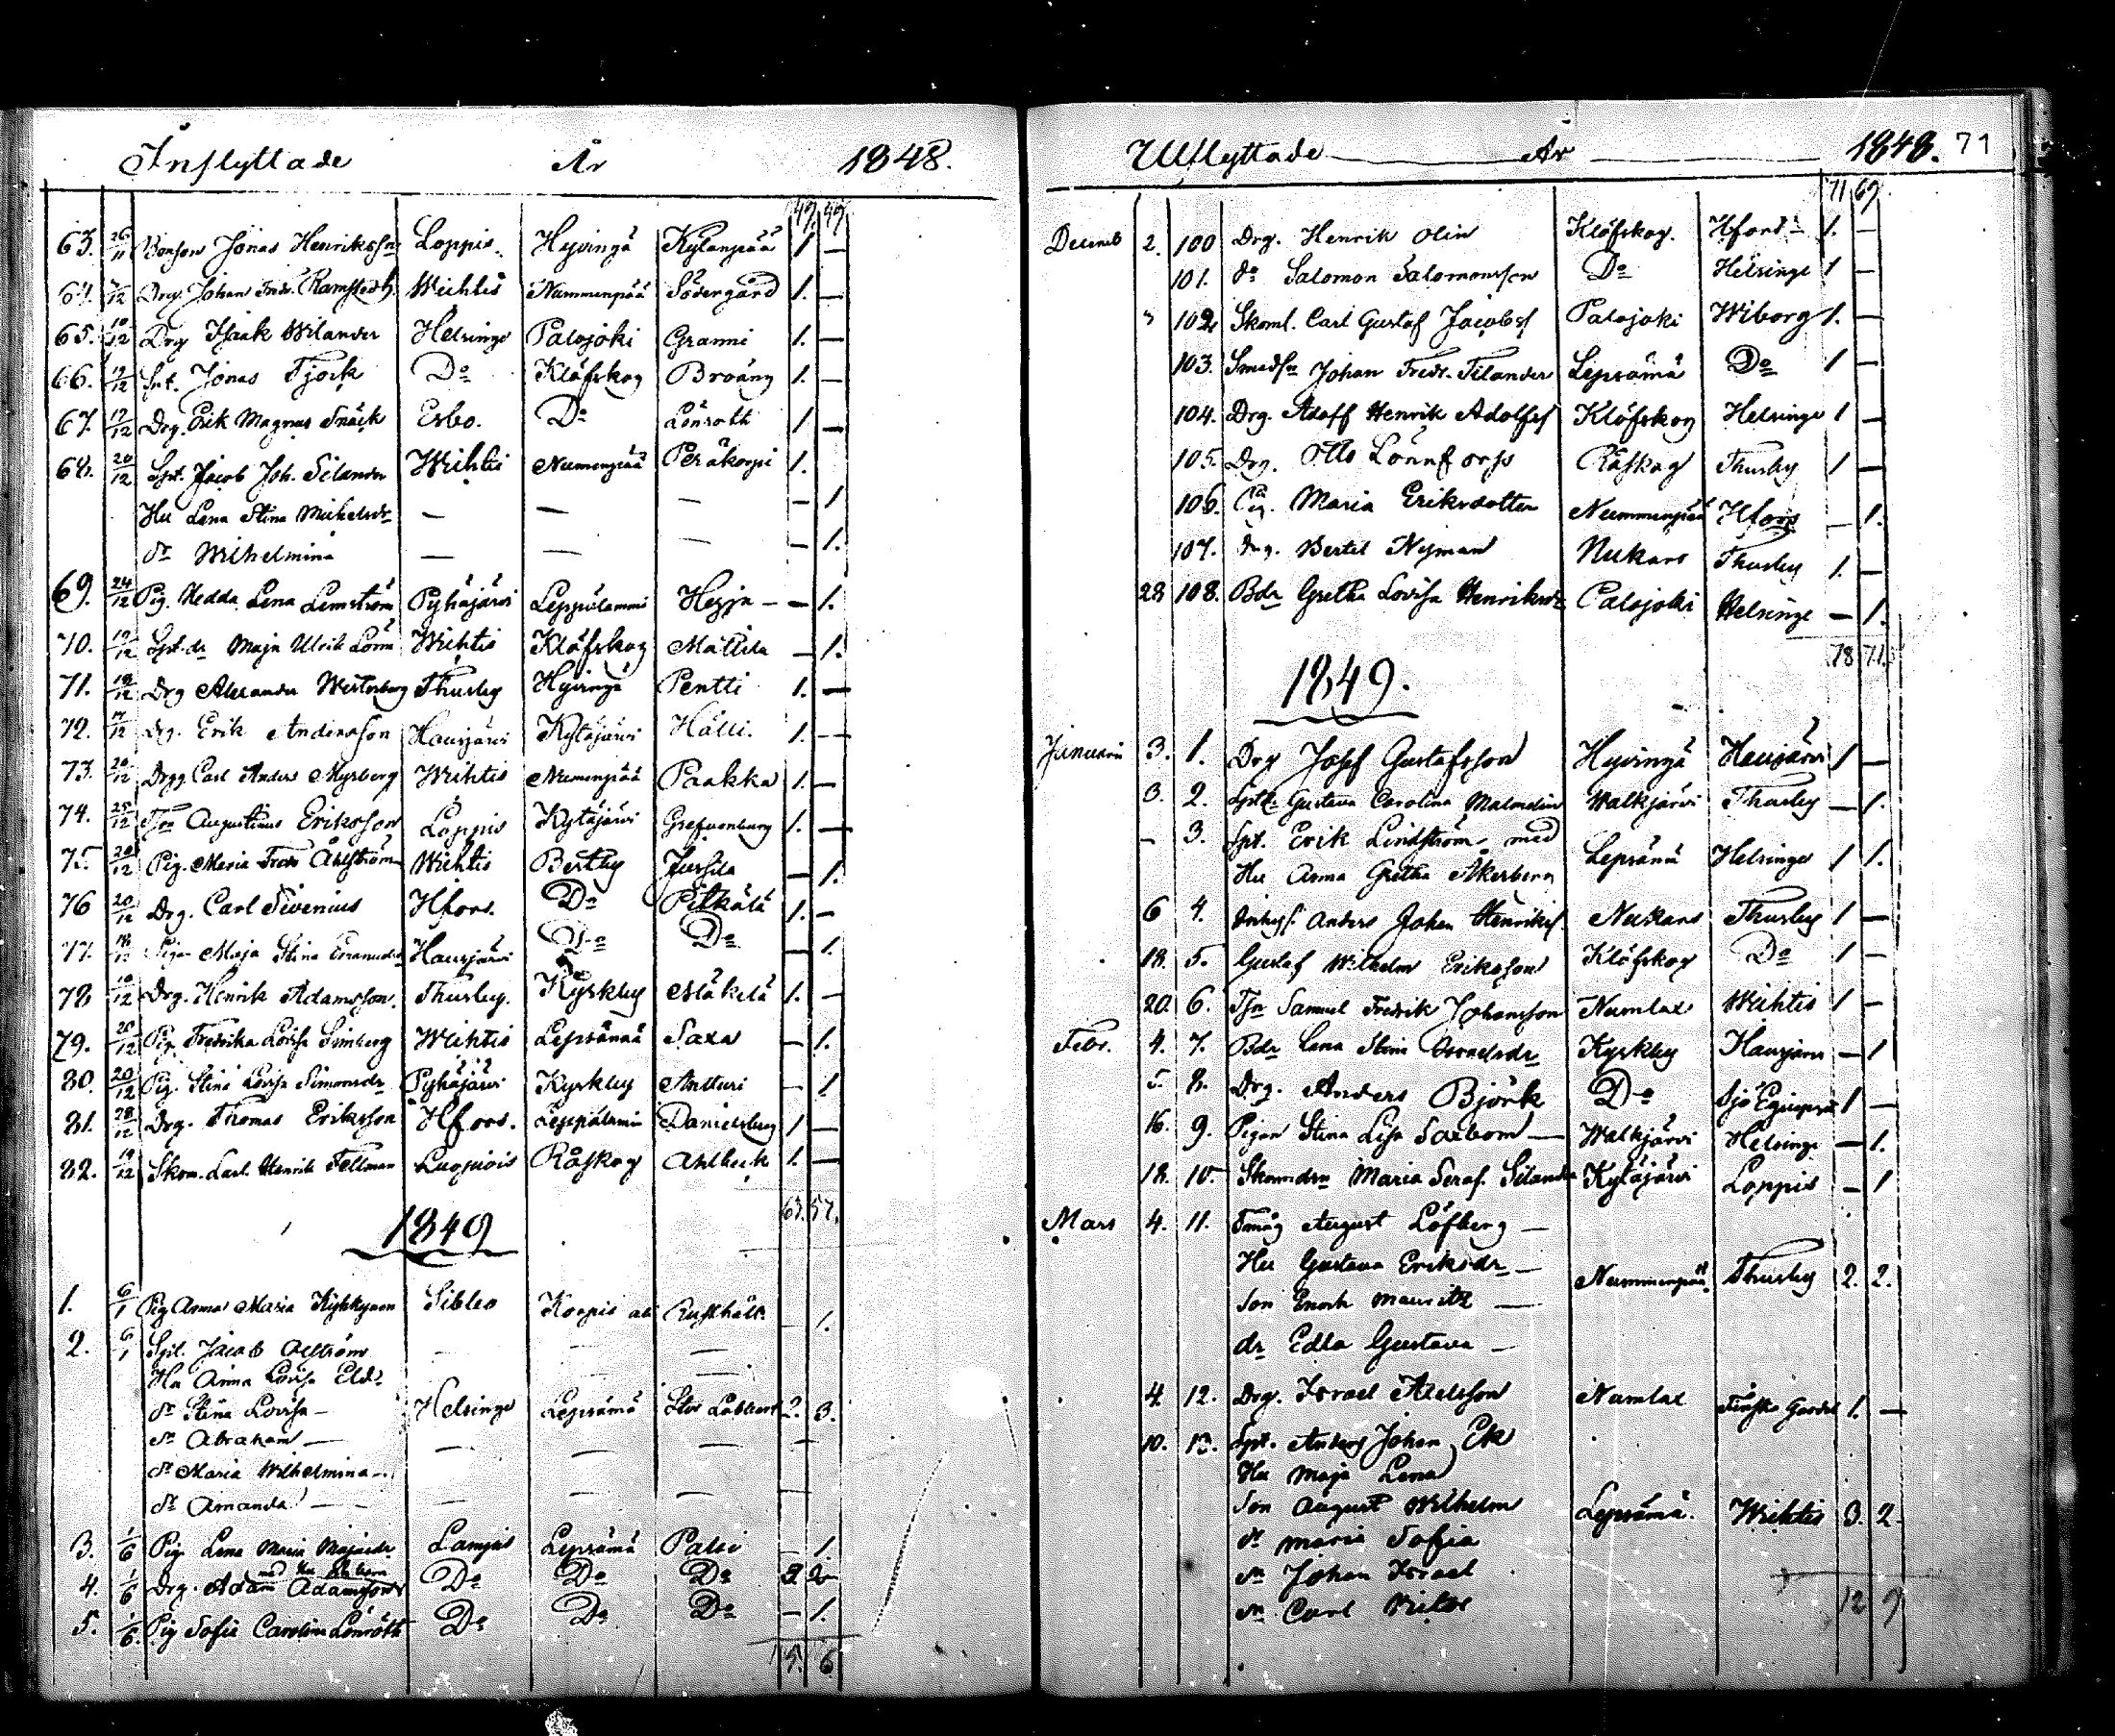 Inflyttade År 1848.
49. 49.
63. 26/11 Bonson Jonas Henriksson Loppis Hyvingä Kytänpää 1 —
64. /12 Drg. Johan Fredr. Ramstedt Wichtis Nummenpää Södergård 1. —
65. 10/12 Drg Isaak Wilander Helsinge Palojoki Granni 1. —
66. 12/12 Jonas Tjork Do Klöfskog Broäng 1. —
67. 12/12 Drg. Erik Magnus Snäck Esbo. Do Lönroth 1 —
68. 20/12 Spt. Jacob Joh. Silander Wichtis Nummenpää Peräkorpi 1.
Hu Lena Stina Michelsdr — — — — 1
dr Wilhelmina — — — — 1.
69. 24/12 Pig. Hedda Lena Lemström Pyhäjärvi Leppälammi Heyja — 1.
70. 19/12 Spt. dr Maja Ulrik Lönn Wichtis Klöfskog Mattila — 1.
71. 19/12 Drg Alexander Westerberg Thusby Hyvingä Pentti 1. —
72. 17/12 Drg. Erik Andersson Hausjärvi Kytäjärvi Hälli. 1. —
73. 20/12 Drg Carl Anders Myrberg Wichtis Nummenpää Paakka 1. —
74. 25/12 Augustinus Eriksson Loppis Kytäjärvi Grefvenberg 1. —
75. 20/12 Pig. Maria Fredr Åhlström Wichtis Bertby Jussila — 1.
76 20/12 Drg. Carl Sivenius Hfors. Do Pitkälä 1. —
77. 18/12 Pigan Maja Stina Emanuelsd Hausjärvi Do Do — 1.
78 10/12 Drg. Henrik Adamsson. Thusby. Kyrkby Mäkelä 1. —
79. 20/12 Pig. Fredrika Lovisa Simberg Wichtis Lepsämä Saxa — 1.
80. 20/12 Pig. Stina Lovisa Simonsdr Pyhäjärvi Kyrkby Antturi — 1
81. 28/12 Drg. Thomas Eriksson Hfors. Leppälammi Danielsberg 1 —
82. 19/12 Skom. Carl Henrik Fellman Luopiois Råskog Ahlbeck 1. —
63. 57.
1849
1. 6/1 Pig Anna Maria Kyhkynen Sibbo Korpis Rusthåll — 1.
2. 6/1 Spt. Jacob Ahlström — — —
Hu Anna Lovisa — —
dr Stina Lovisa — Helsinge Lepsämä Stor Labbart 2. 3.
sn Abraham — — — — —
dr Maria Wilhelmina —
dr Amanda — — — —
3. 1/6 Pig Lena Maria Lampis Lepsämä Palsi — 1.
med Hu
4. 1/6 Drg. Adam Adamsson Do Do Do 2 2
5. 1/6. Pig Sofia Carolina Lönroth Do Do Do — 1.
5. 6
Utflyttade År 1848. 71
71 69
Decemb 2. 100 Drg. Henrik Olin Klöfskog. Hfors — 1. —
101. do Salomon Salomonsson Do Helsinge 1 —
102. Skoml. Carl Gustaf Jacobss Palojoki Wiborg 1. —
103. Smedsn Johan Fredr. Filander Lepsämä Do 1 —
104. Drg. Adolf Henrik Adolfss Klöfskog Helsinge 1 —
105. Drg. Otto Lönnfors Råskog Thusby 1 —
106. Pig. Maria Eriksdotter Nummenpää Hfors — 1.
107. Drg. Bertel Nyman Nukars Thusby 1. —
28 108. Bdr Gretha Lovisa Henriksdr Palojoki Helsinge — 1.
78 71.
1849.
Januari 3. 1. Drg Josef Gustafsson Hyvingä Hausjärvi 1 —
3. 2. Gustava Carolina Malmelin Walkjärvi Thusby — 1.
— 3. Spt. Erik Lindström med
Hu Anna Gretha Åkerberg Lepsämä Helsinge 1 1.
6 4. Anders Johan Henrikss. Nukars Thusby 1 —
18. 5. Gustaf Wilhelm Eriksson Klöfskog Do 1 —
20. 6. Samuel Fredrik Johansson Numlax Wichtis 1 —
Febr. 4. 7. Bdr Lena Stina Kyrkby Hausjärvi — 1
5. 8. Drg. Anders Björk Do Sjö Equipage 1 —
16. 9. Pigan Stina Lisa Saxbom — Walkjärvi Helsinge — 1.
18. 10. Maria Seraf. Silander Kytäjärvi Loppis — 1
Mars 4. 11. August Löfberg —
Hu Gustava Eriksdr — Nummenpää Thusby 2. 2.
Son Enoch Mauritz —
dr Edla Gustava —
4. 12. Drg. Israel Axelsson Numlax Finska Gardet 1. —
10. 13. Spt. Anders Johan Ek
Hu Maja Lena
Son August Wilhelm Lepsämä. Wichtis 3. 2.
dr Maria Sofia
sn Johan Israel
sn Carl Viktor
12 9